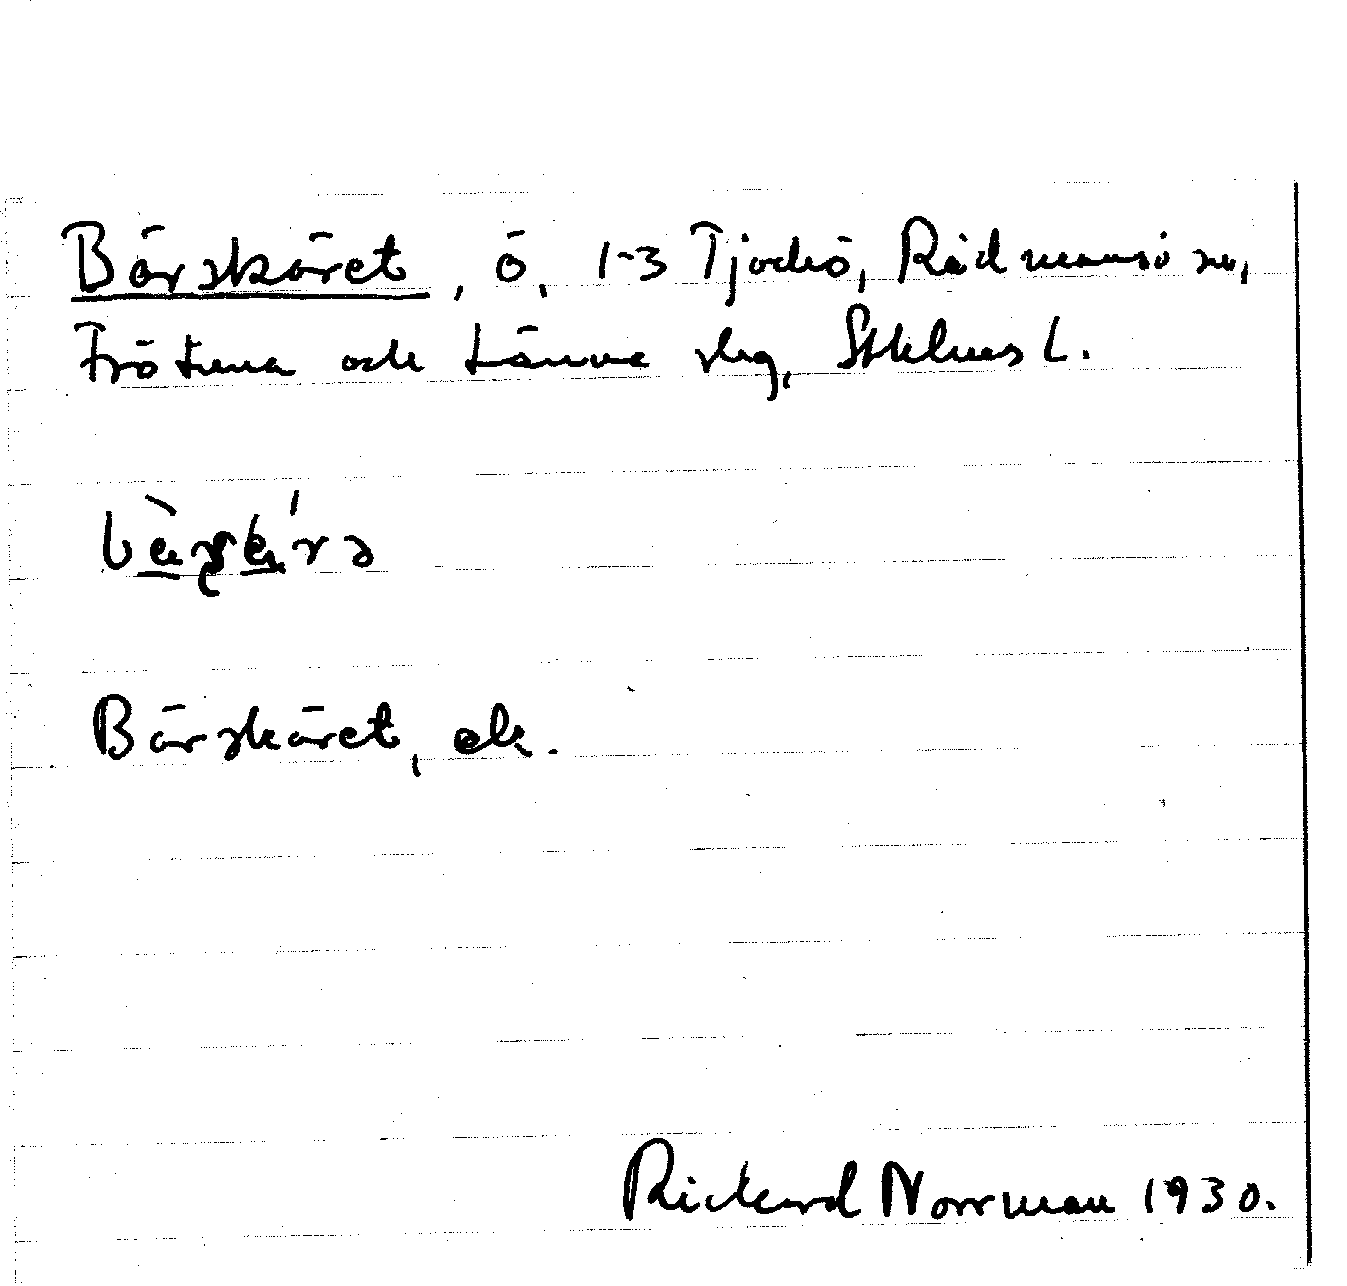 Bärskäret, ö, 1-3 Tjockö, Rådmansö sn,
Frötuna och Länna slg, Sthlms L.
Bärskäret, ek.
Rickard Norrman 1930.